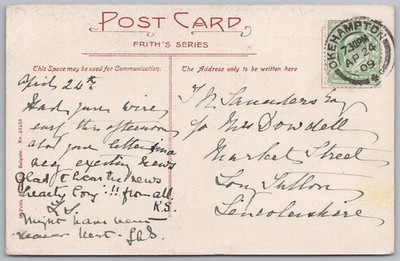 POST CARD
FRITH'S SERIES
This Space may be used for Communication.
The Address only to be written here
OKEHAMPTON
7.30PM
AP 24
09
April 24th
Had your wire
early this afternoon
also your letter
very exciting news
Glad to hear the news
hearty Cong'!!! from all
K.S.
L.S.
Might have been
T.W. Saunders Esq
c/o Mrs Dowdell
Market Street
Long Sutton
Lincolnshire
Frith
Reigate. No.